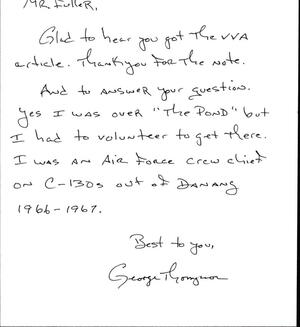 MR. FULLER,
Glad to hear you got the VVA
article. Thank you for the note.
And to answer your question.
Yes I was over "The POND" but
I had to volunteer to get there.
I was an Air Force crew chief
on C-130s out of DANANG
1966-1967.
Best to you,
George